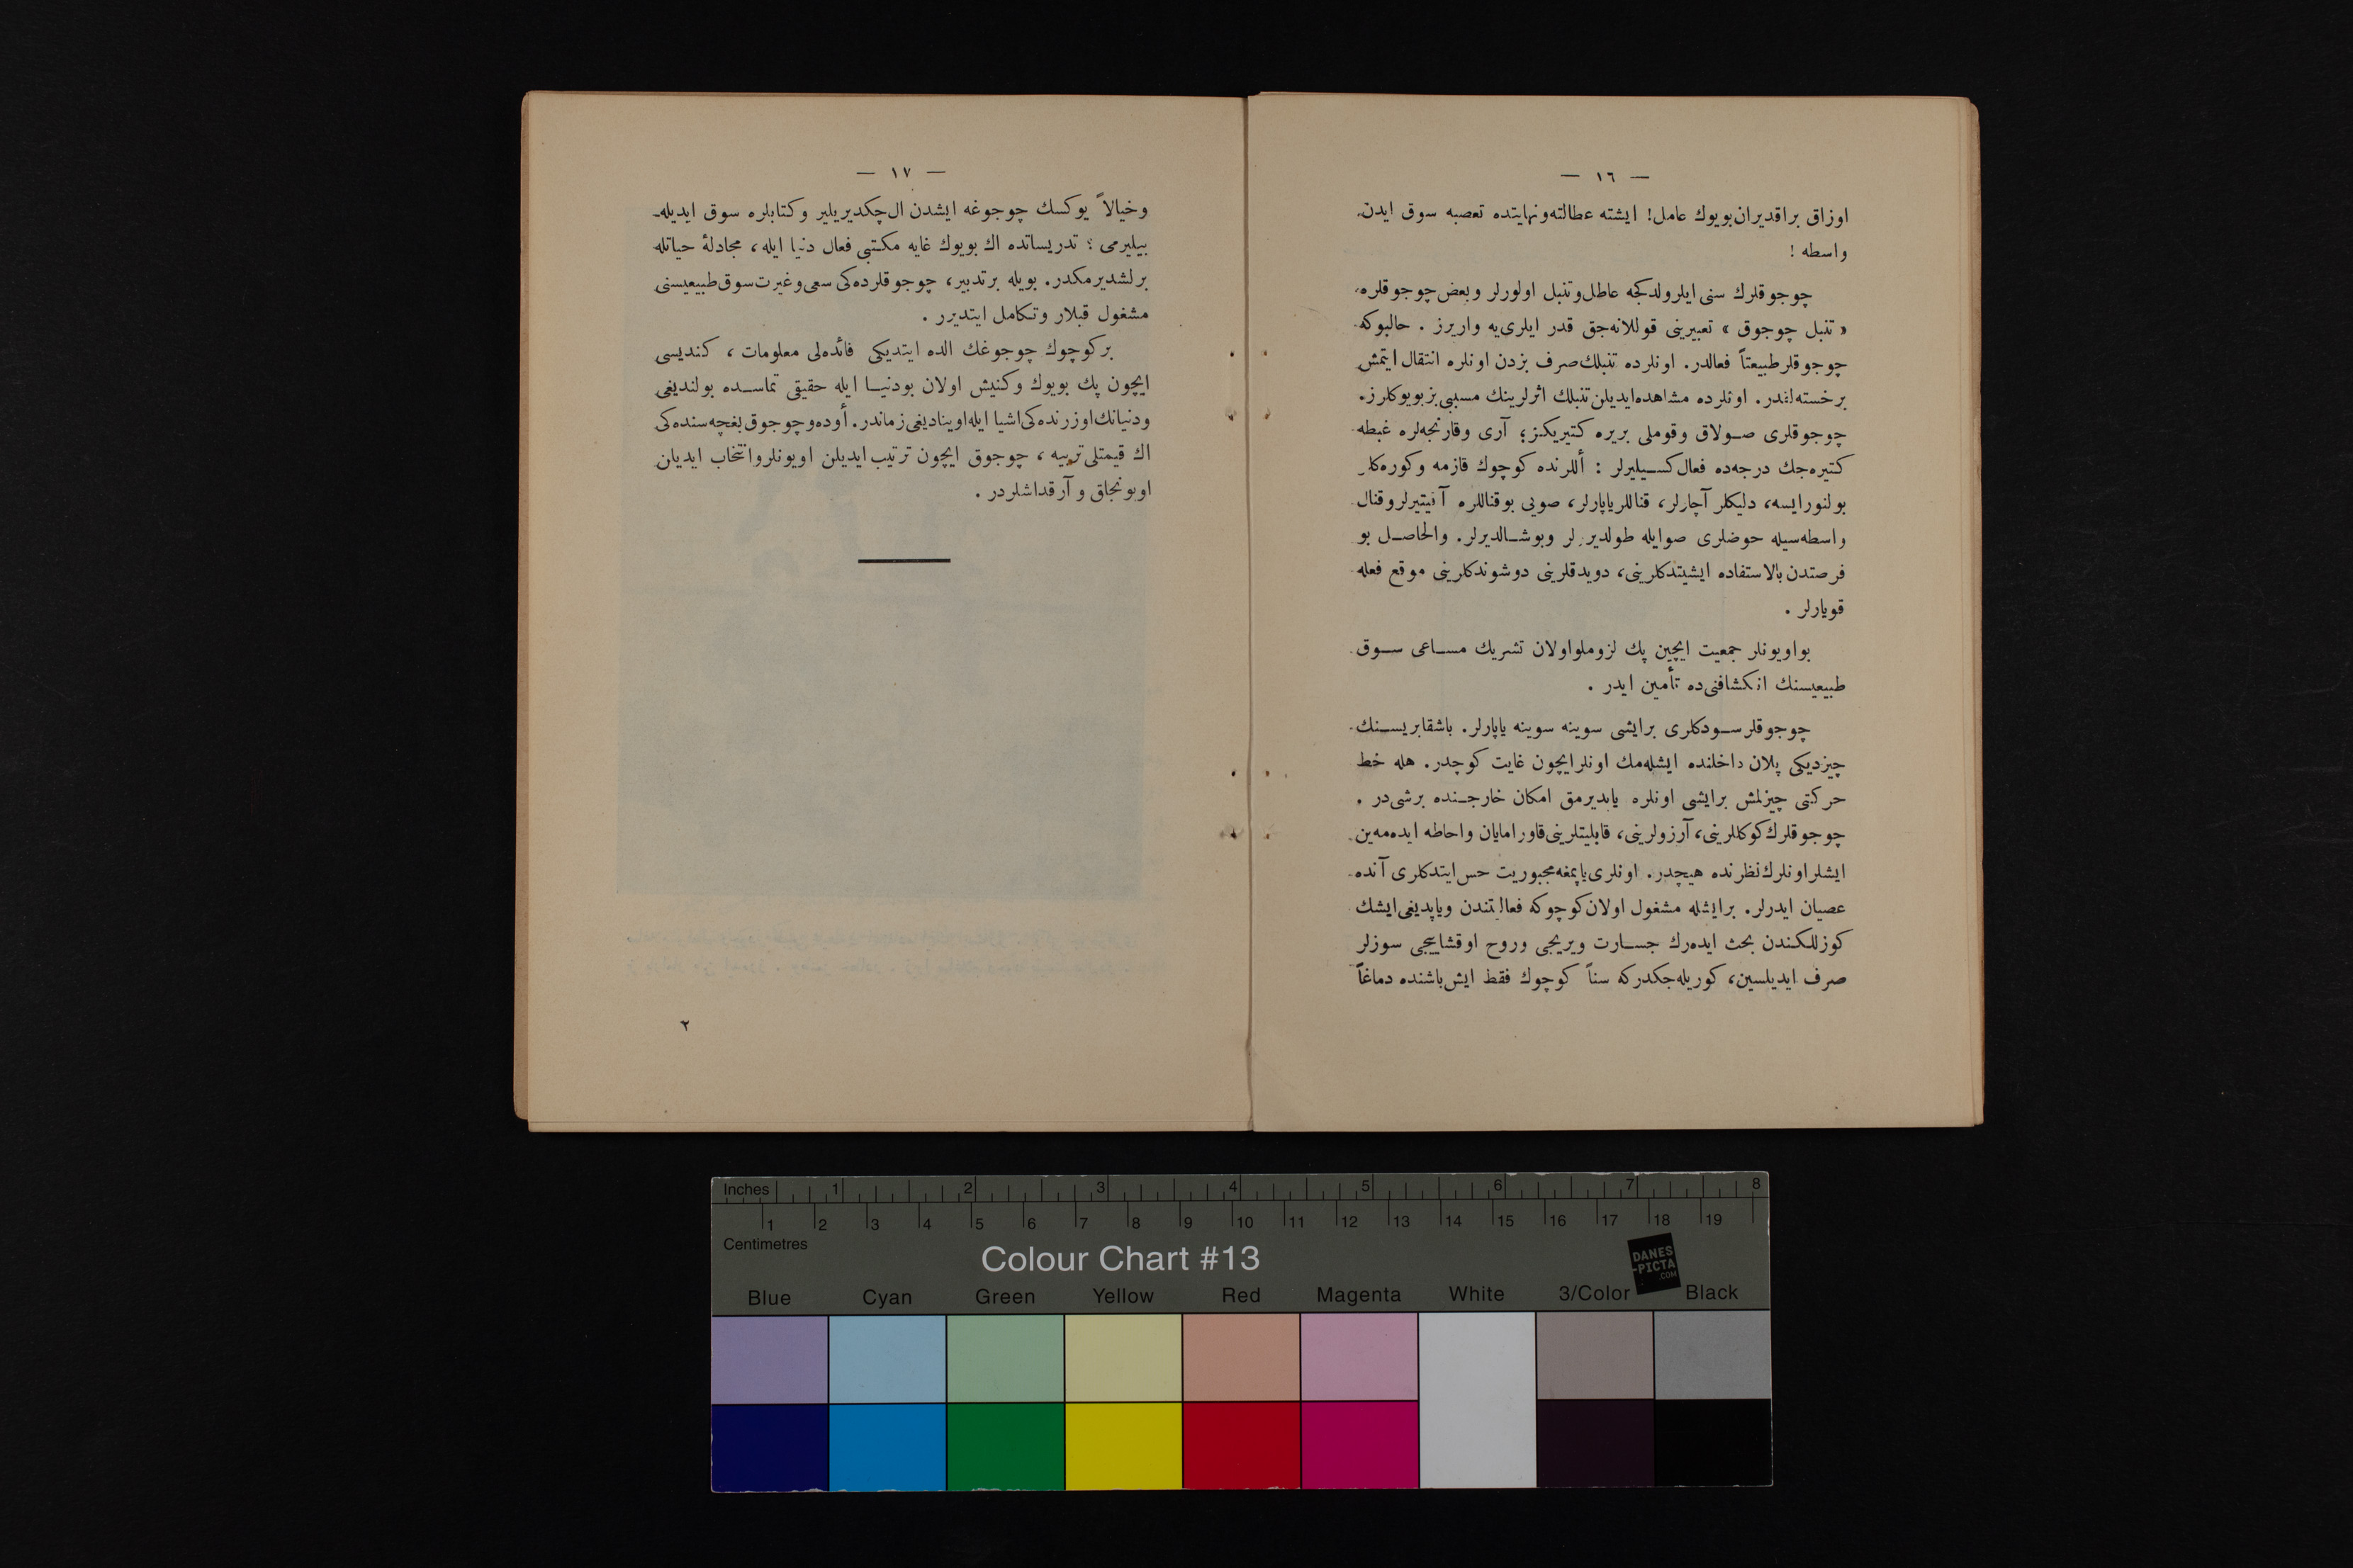 — ١٦ —
اوزاق براقديران بويوك عامل! ايشته عطالته ونهايتده تعصبه سوق ايدن
واسطه !
چوجوقلرك سنى ايلرولدكجه عاطل وتنبل اولورلر وبعض چوجوقلره
« تنبل چوجوق » تعبيرينى قوللانه جق قدر ايلرى يه واريرز . حالبوكه
چوجوقلر طبيعتاً فعالدر. اونلرده تنبلك صرف بزدن اونلره انتقال ايتمش
برخسته لقدر. اونلرده مشاهده ايديلن تنبلك اثرلرينك مسببى بز بويوكلرز.
چوجوقلرى صولاق وقوملى بريره كتيريكز؛ آرى وقارنجه لره غبطه
كتيره جك درجه ده فعال كسيليرلر : أللرنده كوچوك قازمه وكوره كلر
بولنور ايسه، دليكلر آچارلر، قناللر ياپارلر، صويى بوقناللره آقيتيرلر وقنال
واسطه سيله حوضلرى صو ايله طولديررلر وبوشالديرلر. والحاصل بو
فرصتدن بالاستفاده ايشيتدكلرينى، دويدقلرينى دوشوندكلرينى موقع فعله
قويارلر .
بو اويونلر جمعيت ايچين پك لزوملو اولان تشريك مساعى سوق
طبيعيسنك انكشافنى ده تأمين ايدر .
چوجوقلر سودكلرى برايشى سوينه سوينه ياپارلر. باشقا بريسنك
چيزديكى پلان داخلنده ايشله مك اونلر ايچون غايت كوچدر. هله خط
حركتى چيزلمش برايشى اونلره ياپديرمق امكان خارجنده برشى در .
چوجوقلرك كوكللرينى، آرزولرينى، قابليتلرينى قاورامايان واحاطه ايده مه ين
ايشلر اونلرك نظرنده هيچدر. اونلرى ياپمغه مجبوريت حس ايتدكلرى آنده
عصيان ايدرلر. برايشله مشغول اولان كوچوكه فعاليتندن وياپديغى ايشك
كوزللكندن بحث ايده رك جسارت ويريجى وروح اوقشاييجى سوزلر
صرف ايديلسين، كوريله جكدركه سناً كوچوك فقط ايش باشنده دماغاً
— ١٧ —
وخيالاً يوكسك چوجوغه ايشدن ال چكديريلير وكتابلره سوق ايديله
بيليرمى ؟ تدريساتده اك بويوك غايه مكتبى فعال دنيا ايله، مجادلهٔ حياتله
برلشديرمكدر. بويله برتدبير، چوجوقلرده كى سعى وغيرت سوق طبيعيسنى
مشغول قيلار وتكامل ايتديرر .
بر كوچوك چوجوغك الده ايتديكى فائده لى معلومات ، كنديسى
ايچون پك بويوك وكنيش اولان بو دنيا ايله حقيقى تماسده بولنديغى
ودنيانك اوزرنده كى اشيا ايله اوينا ديغى زماندر. أوده وچوجوق بغچه سنده كى
اك قيمتلى تربيه ، چوجوق ايچون ترتيب ايديلن اويونلر وانتخاب ايديلن
اويونجاق و آرقداشلردر .
٢
Inches 1 2 3 4 5 6 7 8
1 2 3 4 5 6 7 8 9 10 11 12 13 14 15 16 17 18 19
Centimetres
Colour Chart #13
DANES
-PICTA
.COM
Blue Cyan Green Yellow Red Magenta White 3/Color Black